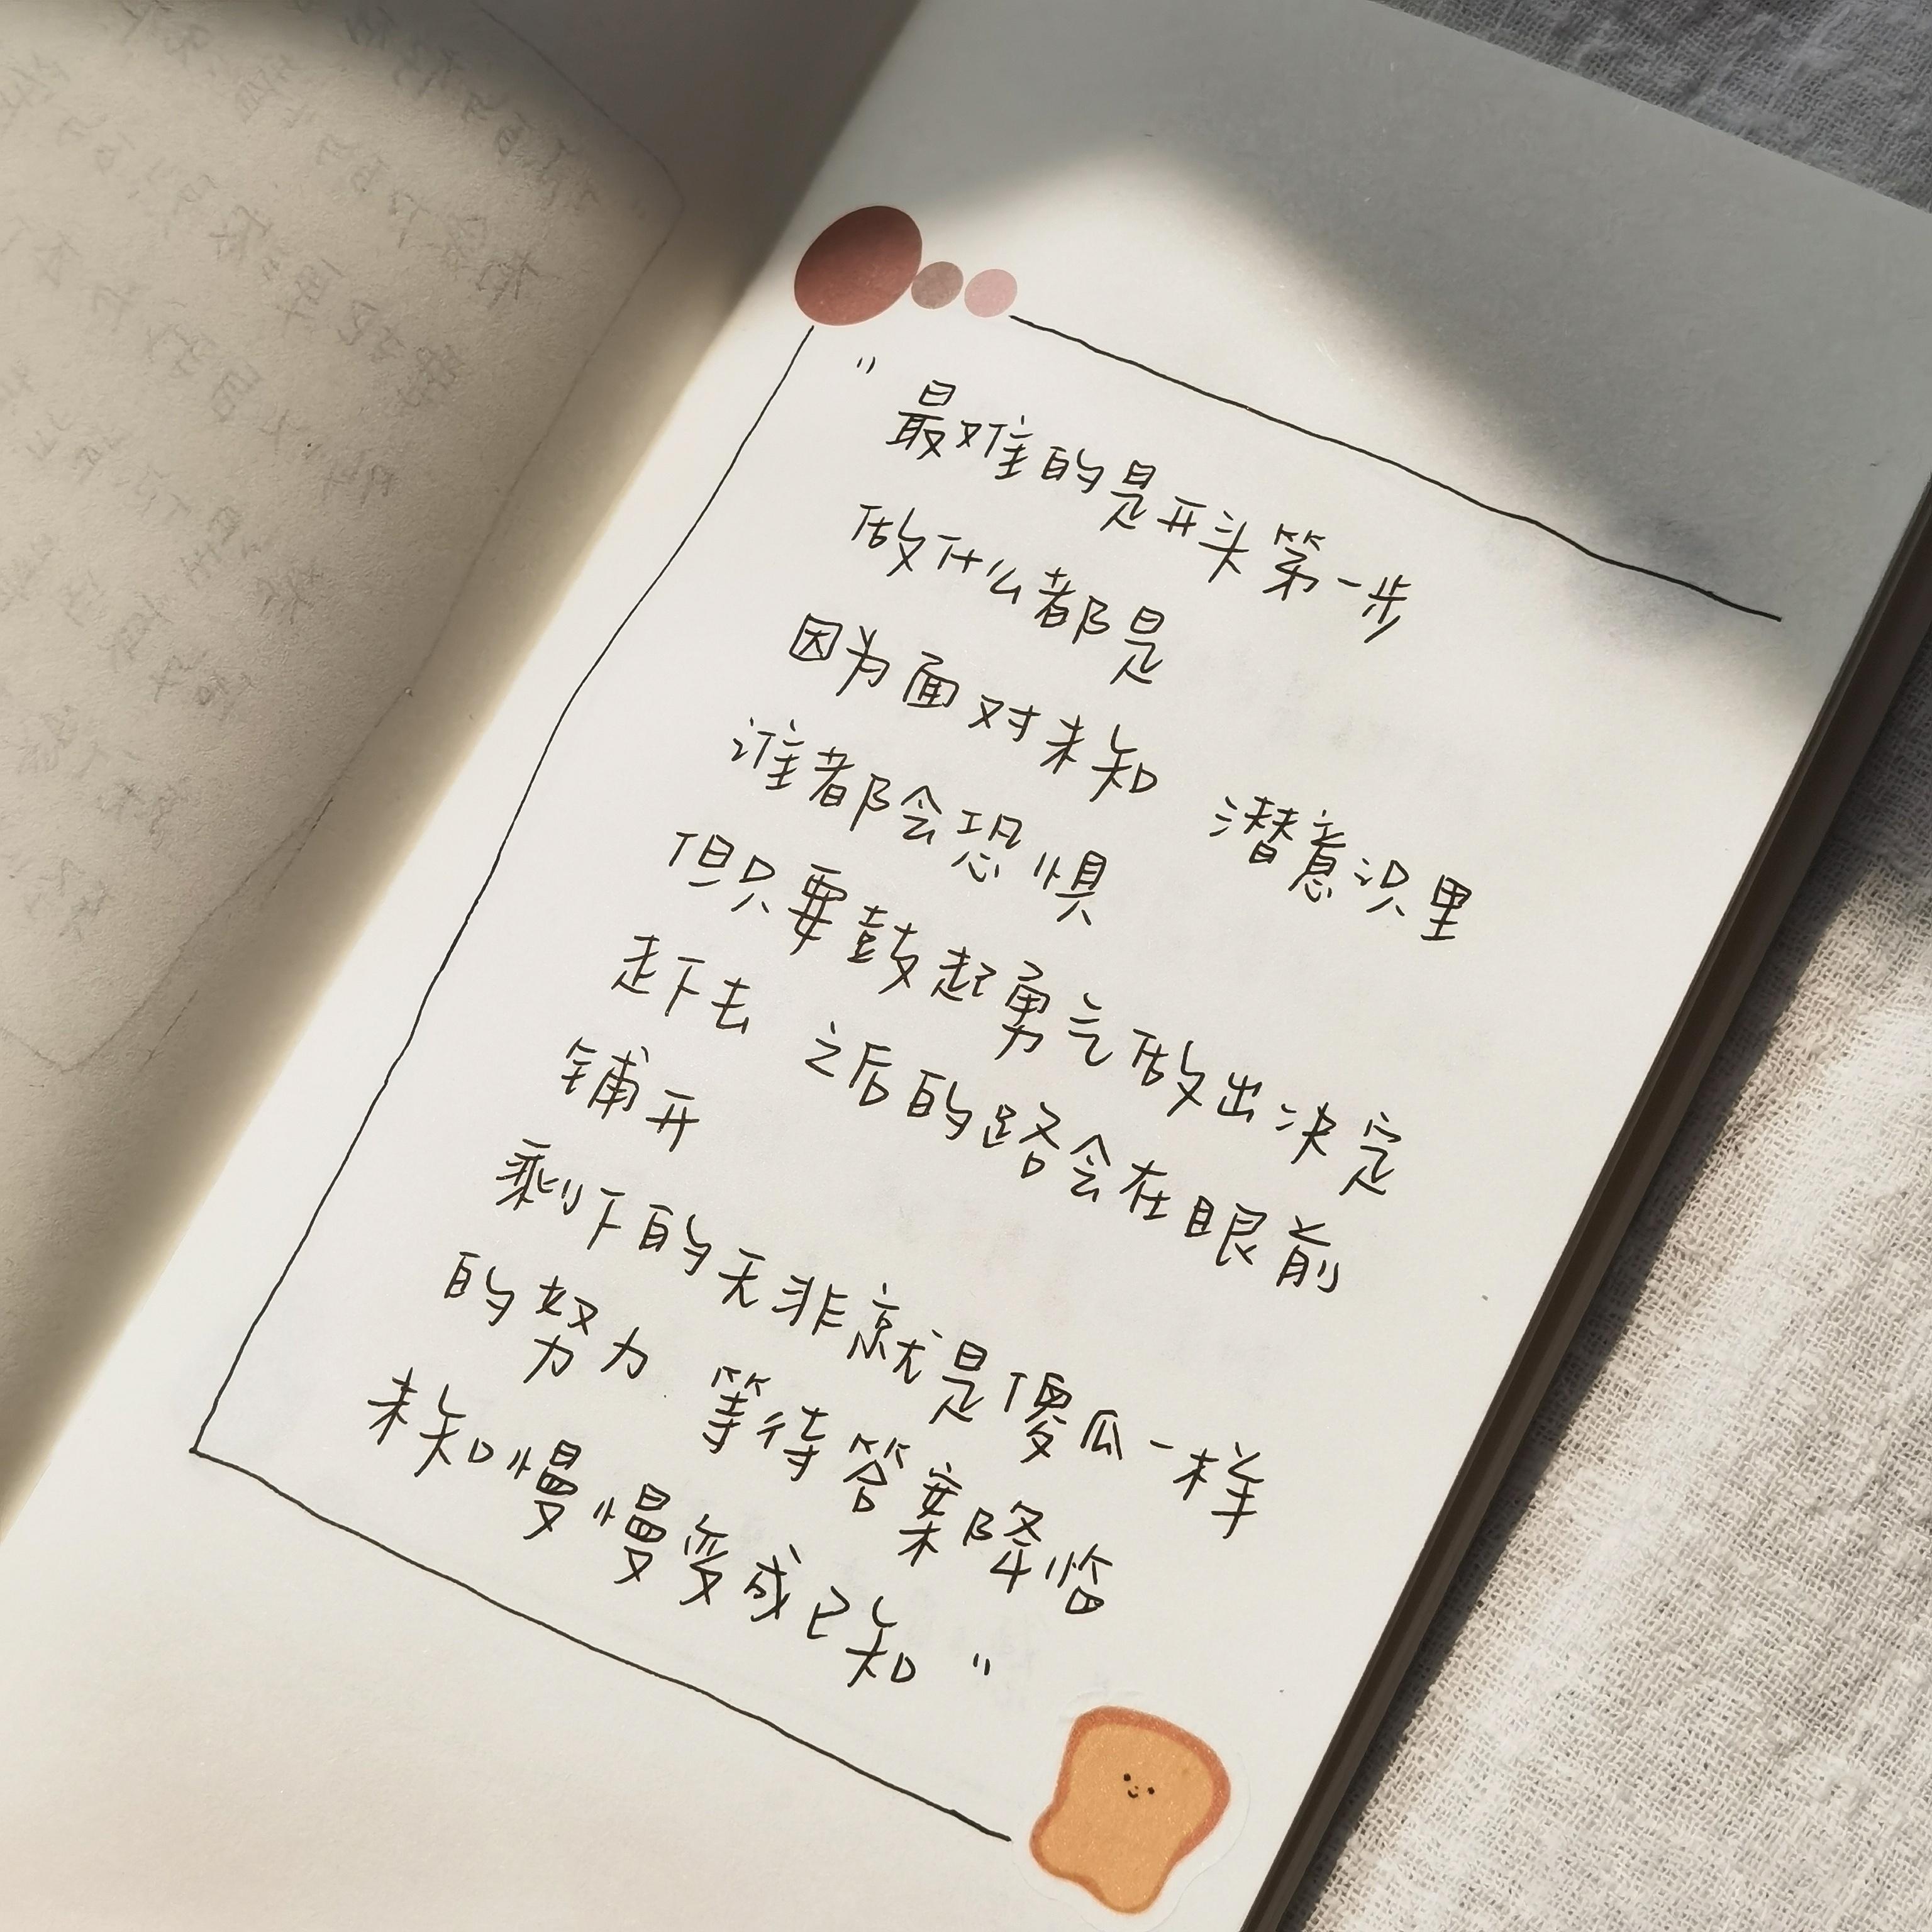 "最难的是开头第一步
做什么都是
因为面对未知 潜意识里
谁都会恐惧
但只要鼓起勇气做出决定
走下去 之后的路会在眼前
铺开
剩下的无非就是傻瓜一样
的努力 等待答案降临
未知慢慢变成已知"